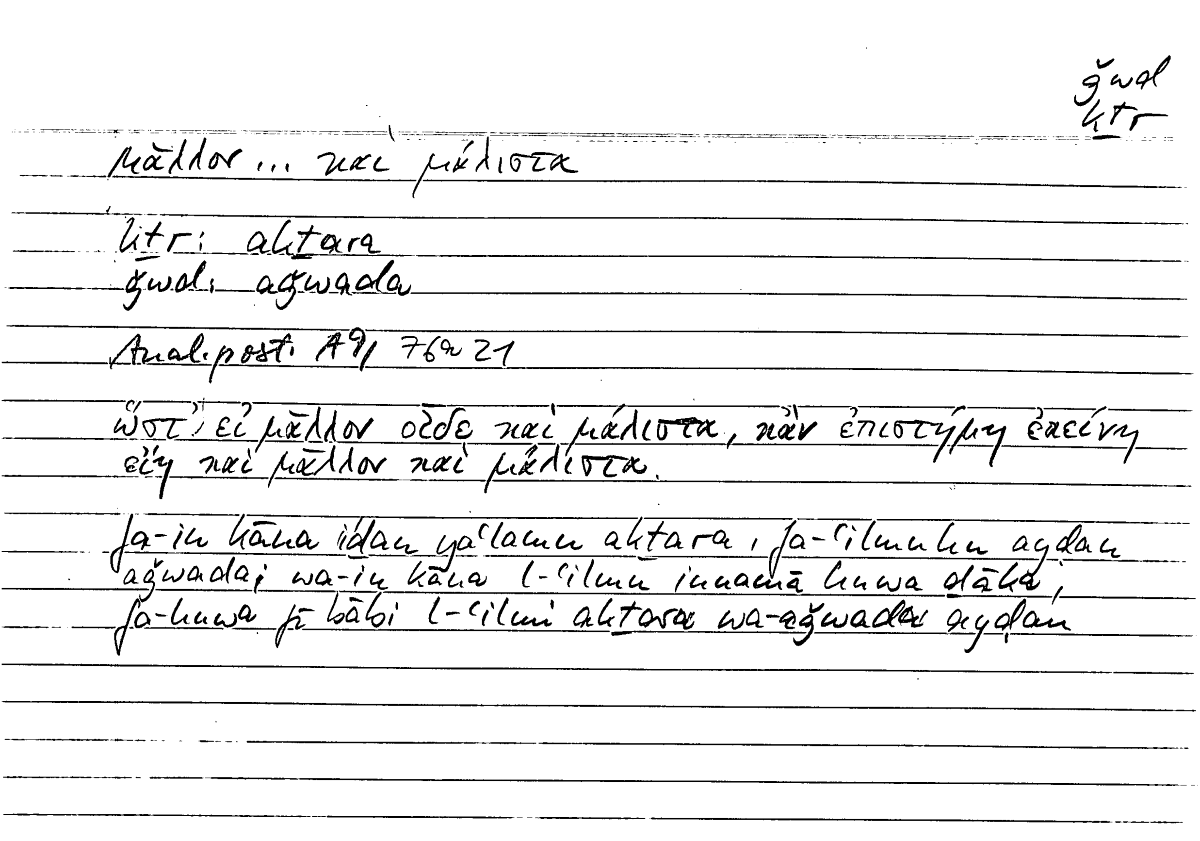 ǧwd
kṯr
μᾶλλον ... καὶ μάλιστα
kṯr: akṯara
ǧwd: aǧwada
Anal. post. A 9, 76a 21
ὥστ’ εἰ μᾶλλον οἶδε καὶ μάλιστα, κἂν ἐπιστήμη ἐκείνη
εἴη καὶ μᾶλλον καὶ μάλιστα.
fa-in kāna iḏan yaʿlamu akṯara, fa-ʿilmuhu ayḍan
aǧwada; wa-in kāna l-ʿilmu innamā huwa ḏāka,
fa-huwa fī bābi l-ʿilmi akṯara wa-aǧwada ayḍan